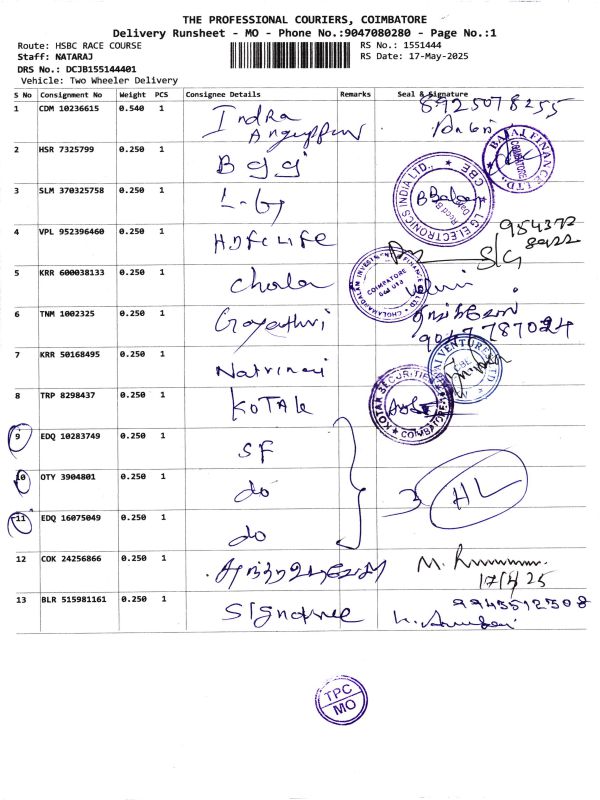 THE PROFESSIONAL COURIERS, COIMBATORE
Delivery Runsheet - MO - Phone No.:9047080280 - Page No.:1
Route: HSBC RACE COURSE
RS No.: 1551444
Staff: NATARAJ
RS Date: 17-May-2025
DRS No.: DCJB155144401
Vehicle: Two Wheeler Delivery
S No Consignment No Weight PCS Consignee Details Remarks Seal & Signature
1 CDM 10236615 0.540 1 Indra 8925078255
2 HSR 7325799 0.250 1 BAJAJ FINANCE LTD., COIMBATORE
3 SLM 370325758 0.250 1 L.G LG ELECTRONICS INDIA LTD., CBE
4 VPL 952396460 0.250 1 HDFC LIFE S/G
5 KRR 600038133 0.250 1 Chola CHOLAMANDALAM INVESTMENT FINANCE CO LTD COIMBATORE
6 TNM 1002325 0.250 1 Gayathri 9047787024
7 KRR 50168495 0.250 1 CBE
8 TRP 8298437 0.250 1 KOTAK KOTAK SECURITIES COIMBATORE
9 EDQ 10283749 0.250 1 SF
10 OTY 3904801 0.250 1 do HL
11 EDQ 16075049 0.250 1 do
12 COK 24256866 0.250 1
13 BLR 515981161 0.250 1 9945512508
TPC
MO